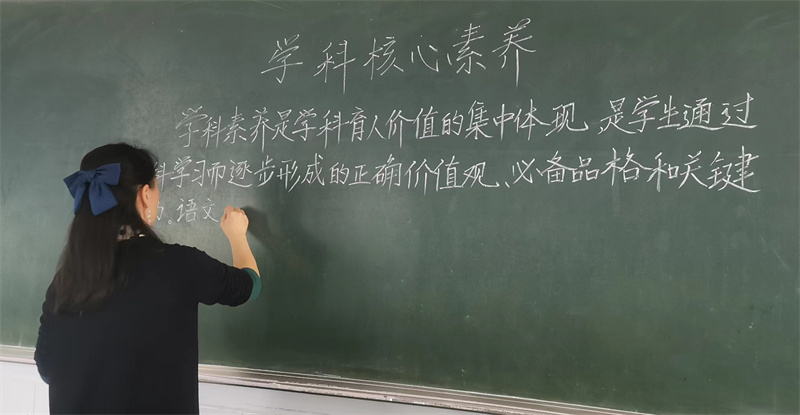 学科核心素养
学科素养是学科育人价值的集中体现、是学生通过
科学习而逐步形成的正确价值观、必备品格和关键
。语文